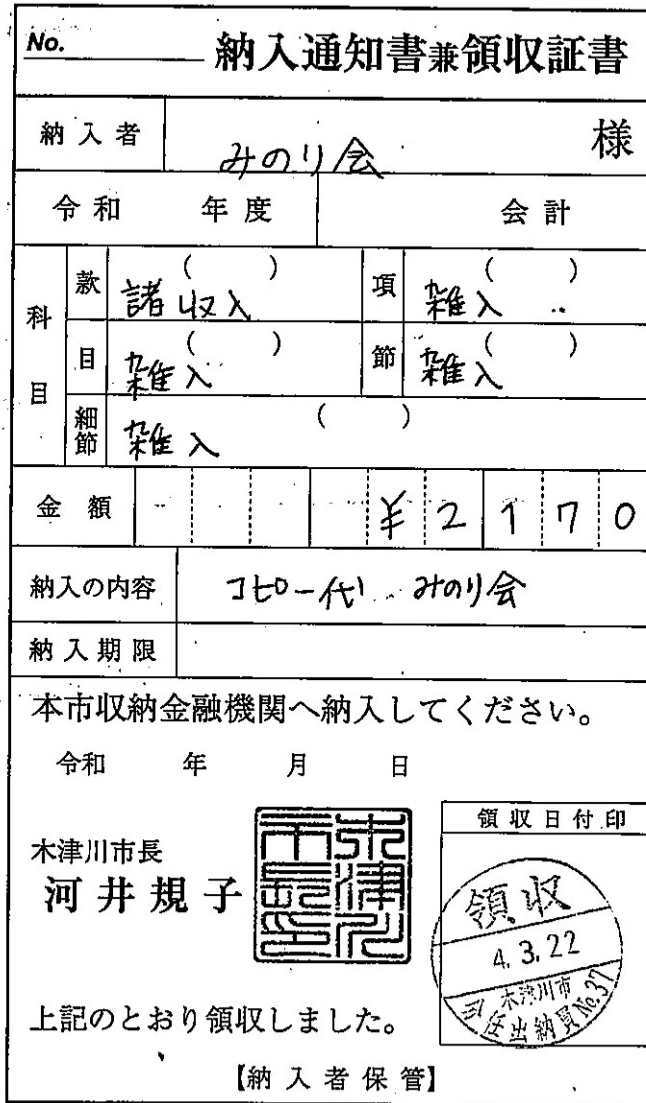 No. 納入通知書兼領収証書
納入者 みのり会 様
令和 年度 会計
科目
款 ( ) 諸収入
項 ( ) 雑入
目 ( ) 雑入
節 ( ) 雑入
細節 ( ) 雑入
金額 ¥2170
納入の内容 コピー代 みのり会
納入期限
本市収納金融機関へ納入してください。
令和 年 月 日
木津川市長
河井規子
木津川市長之印
領収日付印
領収
4.3.22
木津川市
分任出納員No.37
上記のとおり領収しました。
【納入者保管】